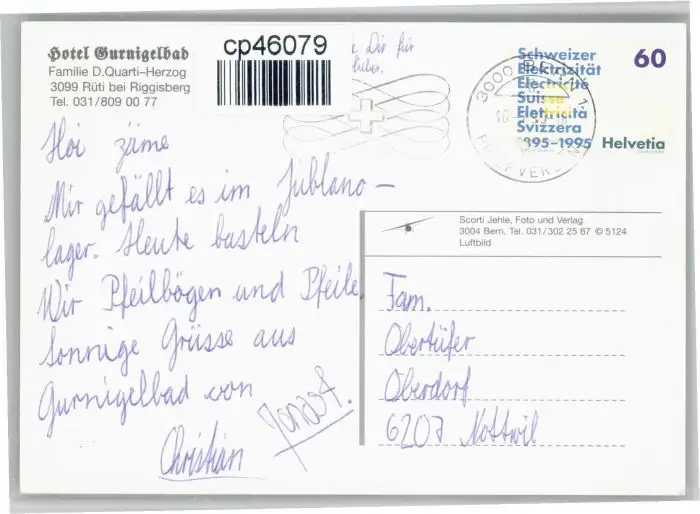 Hotel Gurnigelbad
Familie D.Quarti–Herzog
3099 Rüti bei Riggisberg
Tel. 031/809 00 77
cp46079
Dir für
Schweizer
Elektrizität
Electricité
Suisse
Elettricità
Svizzera
1895–1995
60
Helvetia
3000 BERN 1
Hoi zäme
Mir gefällt es im Jublano–
lager. Heute basteln
Wir Pfeilbögen und Pfeile.
Sonnige Grüsse aus
Gurnigelbad von
Christian
Jonas f.
Scorti Jehle, Foto und Verlag
3004 Bern, Tel. 031/302 25 67 © 5124
Luftbild
Fam.
Obertüfer
Oberdorf
6207 Nottwil